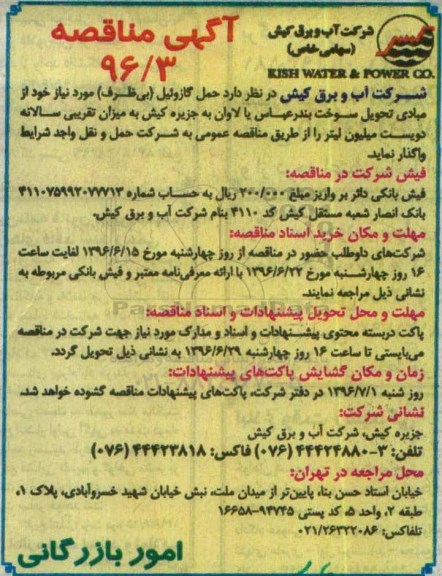 شرکت آب و برق کیش
(سهامی خاص)
KISH WATER & POWER CO.
آگهی مناقصه
۹۶/۳
شرکت آب و برق کیش در نظر دارد حمل گازوئیل (بی‌ظرف) مورد نیاز خود از
مبادی تحویل سوخت بندرعباس یا لاوان به جزیره کیش به میزان تقریبی سالانه
دویست میلیون لیتر را از طریق مناقصه عمومی به شرکت حمل و نقل واجد شرایط
واگذار نماید.
فیش شرکت در مناقصه:
فیش بانکی دائر بر واریز مبلغ ۲۰۰/۰۰۰ ریال به حساب شماره ۴۱۱۰۷۵۹۹۲۰۷۷۷۱۳
بانک انصار شعبه مستقل کیش کد ۴۱۱۰ بنام شرکت آب و برق کیش.
مهلت و مکان خرید اسناد مناقصه:
شرکت‌های داوطلب حضور در مناقصه از روز چهارشنبه مورخ ۱۳۹۶/۶/۱۵ لغایت ساعت
۱۶ روز چهارشنبه مورخ ۱۳۹۶/۶/۲۲ با ارائه معرفی‌نامه معتبر و فیش بانکی مربوطه به
نشانی ذیل مراجعه نمایند.
مهلت و محل تحویل پیشنهادات و اسناد مناقصه:
پاکت دربسته محتوی پیشنهادات و اسناد و مدارک مورد نیاز جهت شرکت در مناقصه
می‌بایستی تا ساعت ۱۶ روز چهارشنبه ۱۳۹۶/۶/۲۹ به نشانی ذیل تحویل گردد.
زمان و مکان گشایش پاکت‌های پیشنهادات:
روز شنبه ۱۳۹۶/۷/۱ در دفتر شرکت، پاکت‌های پیشنهادات مناقصه گشوده خواهد شد.
نشانی شرکت:
جزیره کیش، شرکت آب و برق کیش
تلفن: ۳-۴۴۴۲۴۸۸۰ (۰۷۶) فاکس: ۴۴۴۲۳۸۱۸ (۰۷۶)
محل مراجعه در تهران:
خیابان استاد حسن بنا، پایین‌تر از میدان ملت، نبش خیابان شهید خسروآبادی، پلاک ۱،
طبقه ۲، واحد ۵، کد پستی ۹۴۷۴۵-۱۶۶۵۸
تلفاکس: ۰۲۱/۲۶۳۲۲۰۸۶
امور بازرگانی